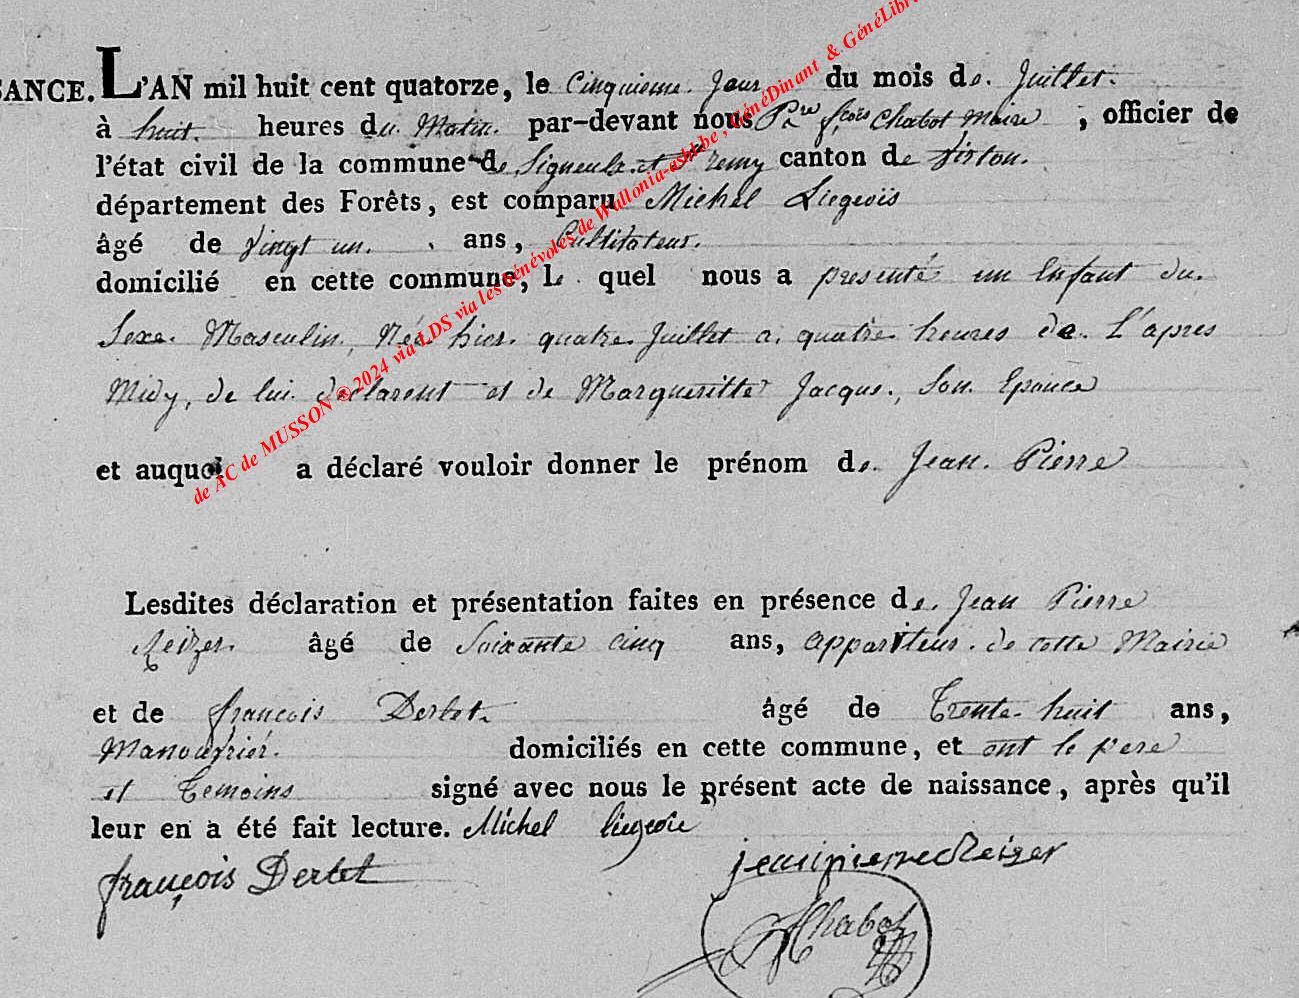 SANCE. L'AN mil huit cent quatorze, le Cinquieme Jour du mois de Juillet.
à huit heures du Matin. par-devant nous Pre fçois Chabot Maire ; officier de
l'état civil de la commune de Signeulx et St remy canton de Virton.
département des Forêts, est comparu Michel Liegeois
âgé de Vingt un. ans, Cultivateur.
domicilié en cette commune, Le quel nous a presenté un Enfant du
Sexe Masculin, Née hier quatre Juillet a quatre heures de L'apres
Midy, de lui declarent et de Margueritte Jacque, Son Epouce
et auquel a déclaré vouloir donner le prénom de Jean Pierre
Lesdites déclaration et présentation faites en présence de Jean Pierre
Reizer âgé de Soixante cinq ans, appariteur de cette Mairie
et de françois Dertet âgé de Trente huit ans,
Manouvrier. domiciliés en cette commune, et ont le pere
et Temoins signé avec nous le présent acte de naissance, après qu'il
leur en a été fait lecture. Michel liegeois
françois Dertet jeanpierre Reizer
Chabot
de AC de MUSSON ®2024 via LDS via les bénévoles de Wallonia-asbl.be, GénéDinant & GénéLibre